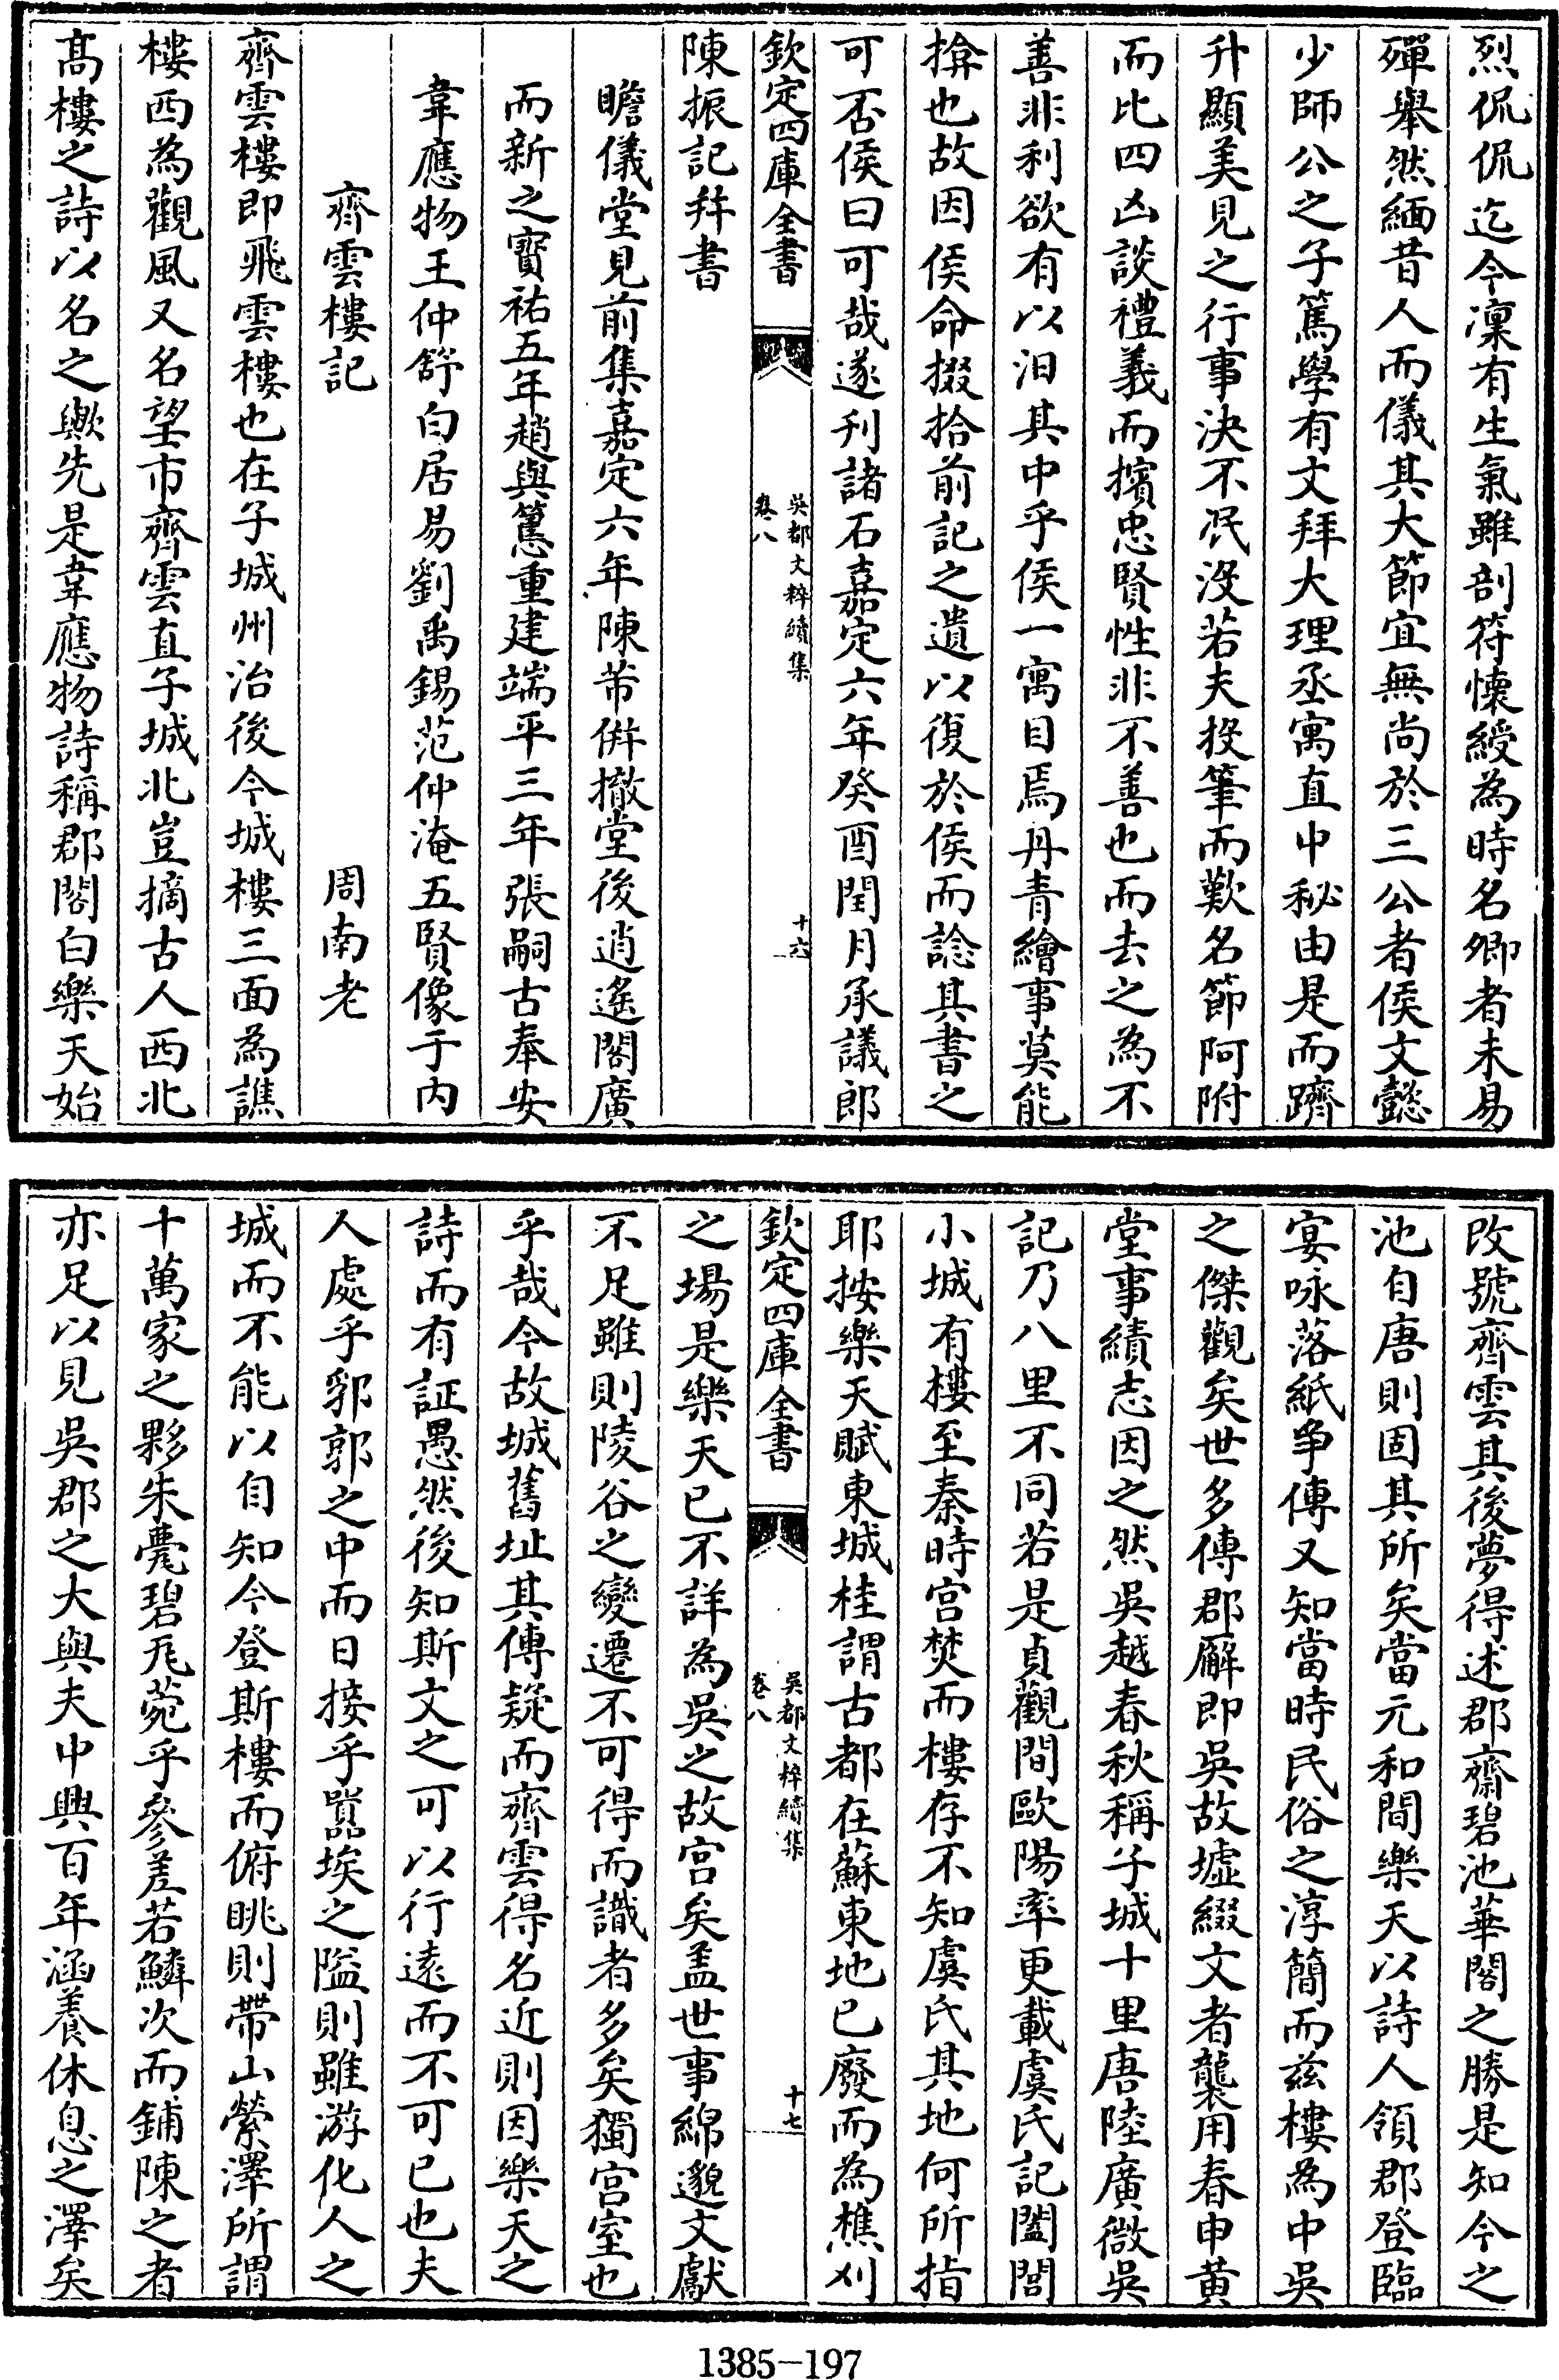 烈侃侃迄今凜有生氣雖剖符懷綬為時名卿者未易
殫舉然緬昔人而儀其大節宜無尚於三公者侯文懿
少師公之子篤學有文拜大理丞寓直中秘由是而躋
升顯美見之行事決不泯沒若夫投筆而歎名節阿附
而比四凶談禮義而擯忠賢性非不善也而去之為不
善非利欲有以汨其中乎侯一寓目焉丹青繪事莫能
揜也故因侯命掇拾前記之遺以復於侯而諗其書之
可否侯曰可哉遂刊諸石嘉定六年癸酉閏月承議郎
欽定四庫全書 吳都文粹續集 卷八 十六
陳振記幷書
瞻儀堂見前集嘉定六年陳芾併撤堂後逍遙閣廣
而新之寶祐五年趙與𥲅重建端平三年張嗣古奉安
韋應物王仲舒白居易劉禹錫范仲淹五賢像于内
齊雲樓記 周南老
齊雲樓即飛雲樓也在子城州治後今城樓三面為譙
樓西為觀風又名望市齊雲直子城北豈摘古人西北
髙樓之詩以名之歟先是韋應物詩稱郡閣白樂天始
改號齊雲其後夢得述郡齋碧池華閣之勝是知今之
池自唐則固其所矣當元和間樂天以詩人領郡登臨
宴咏落紙爭傳又知當時民俗之淳簡而兹樓為中吳
之傑觀矣世多傳郡廨即吳故墟綴文者襲用春申黄
堂事績志因之然吳越春秋稱子城十里唐陸廣微吳
記乃八里不同若是貞觀間歐陽率更載虞氏記闔閭
小城有樓至秦時宫焚而樓存不知虞氏其地何所指
耶按樂天賦東城桂謂古都在蘇東地已廢而為樵刈
欽定四庫全書 吳都文粹續集 卷八 十七
之場是樂天已不詳為吳之故宫矣盖世事綿邈文獻
不足雖則陵谷之變遷不可得而識者多矣獨宫室也
乎哉今故城舊址其傳疑而齊雲得名近則因樂天之
詩而有証愚然後知斯文之可以行遠而不可已也夫
人處乎郛郭之中而日接乎囂埃之隘則雖游化人之
城而不能以自知今登斯樓而俯眺則帶山縈澤所謂
十萬家之夥朱甍碧瓦菀乎參差若鱗次而鋪陳之者
亦足以見吳郡之大與夫中興百年涵養休息之澤矣
1385-197